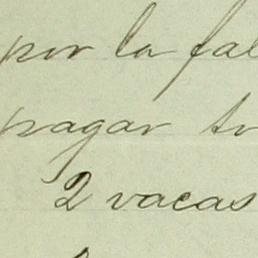 por la fal
pagar tr
2 vacas